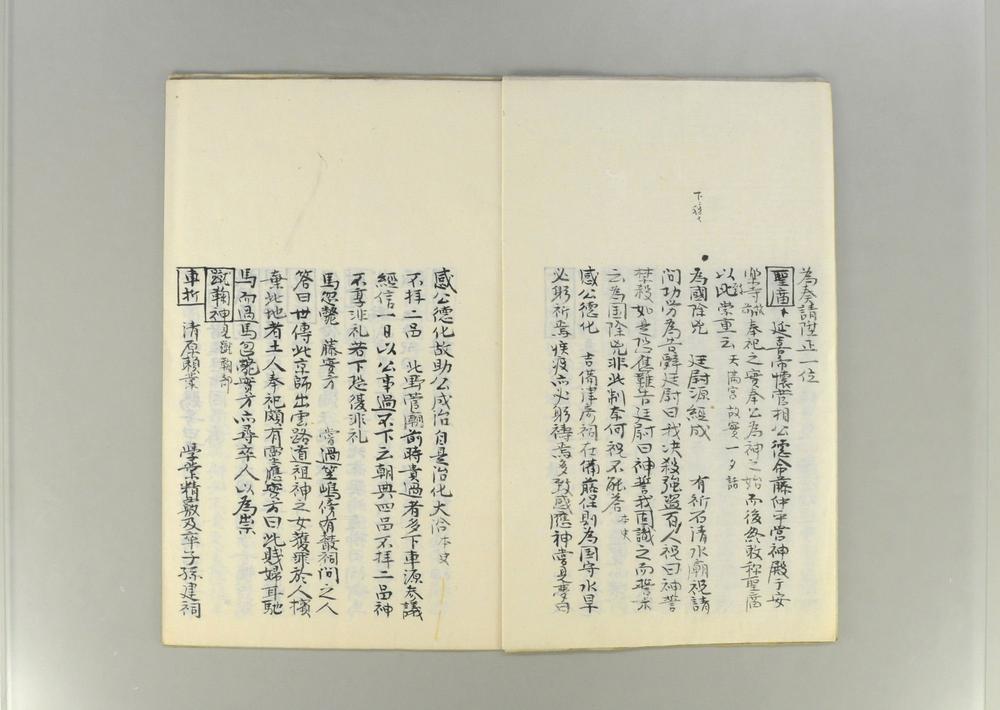 為奏請陞正一位
聖廟 延喜帝懐菅相公徳令藤仲平営神殿于安
楽寺敬奉祀之実奉公為神之始而後終敕称聖廟
以此崇重云 天満宮故実一夕話
為國除兇 廷尉源経成 有祈石清水廟祝請
問功労為告辞廷尉曰我决殺強盗有人祝曰神誓
禁殺如世恐復難告廷尉曰神誓我固識之而誓亦
云為国除兇非此制奈何祝不能答 本史
感公徳化 吉備津彦祠在備 藤保則為国守水旱
必躬祈焉疾疫亦必躬祷焉多致感應神嘗見夢曰
感公徳化故助公成治自是治化大洽 本史
不拝二品 北野菅廟前時貴過者多下車源参議
経信一日以公事過不下云朝典四品不拝二品神
不享非礼若下恐復非礼
馬忽斃 藤実方 嘗過笠嶋傍有叢祠問之人
答曰世傳此京師出雲路道祖神之女獲罪於人擯
棄此地者土人奉祀頗有霊應実方曰此賎婦耳馳
馬而過馬忽斃実方亦尋卒人以為祟
蹴鞠神 見蹴鞠部
車折 清原頼業 学業精敷及卒子孫建祠